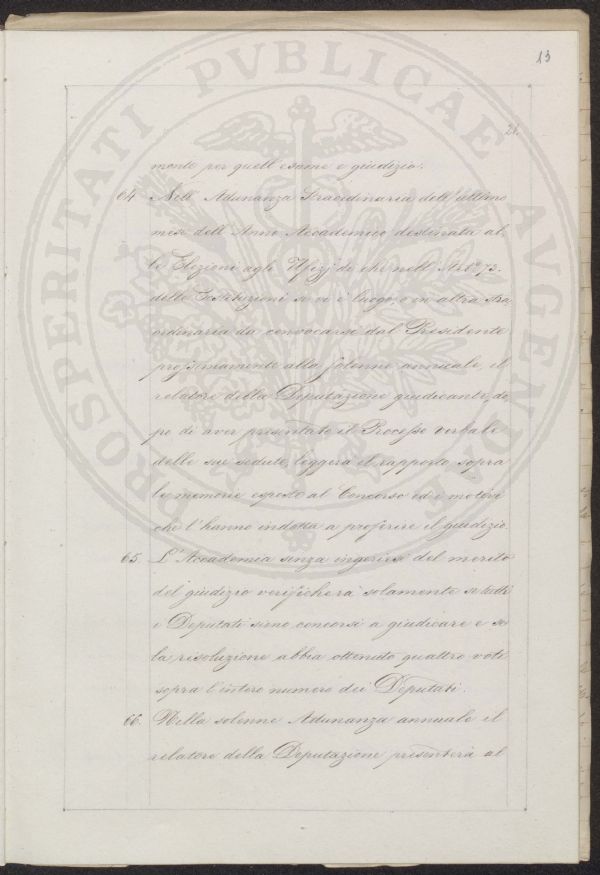 13
21.
mento per quell'esame e giudizio.
64. Nell' Adunanza Straordinaria dell'ultimo
mese dell' Anno Accademico destinata al
le Elezioni agli Ufizj di che nell' Art.º 73.
delle Costituzioni se vi è luogo, o in altra stra
ordinaria da convocarsi dal Presidente
prossimamente alla solenne annuale, il
relatore della Deputazione giudicante, do
po di aver presentato il Processo verbale
delle sue sedute, leggerà il rapporto sopra
le memorie esposte al Concorso ed i motivi
che l'hanno indotta a proferire il giudizio.
65. L'Accademia senza ingerirsi del merito
del giudizio verificherà solamente se tutti
i Deputati sieno concorsi a giudicare e se
la risoluzione abbia ottenuto quattro voti
sopra l'intero numero dei Deputati.
66. Nella solenne Adunanza annuale il
relatore della Deputazione presenterà al
PROSPERITATI PVBLICAE AVGENDAE